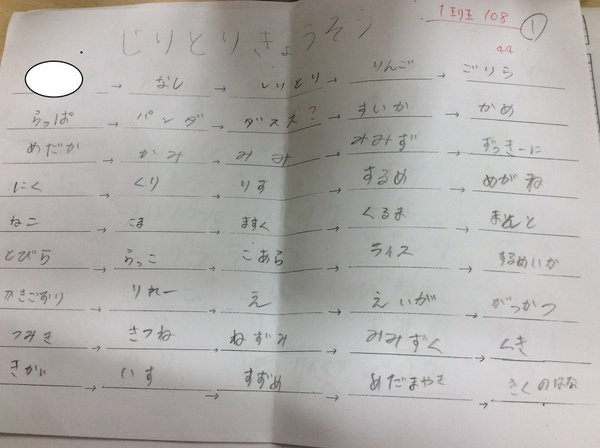 1班 108 ①
44
しりとりきょうそう
→ なし → しりとり → りんご → ごりら
らっぱ → パンダ → ダスス? → すいか → かめ
めだか → かみ → みみ → みみず → ずっきーに
にく → くり → りす → するめ → めがね
ねこ → こま → ますく → くるま → まと
とびら → らっこ → こあら → ライス → するめいか
かきごおり → りれー → え → えいが → がっかつ
つみき → きつね → ねずみ → みみずく → くき
きかい → いす → すずめ → めだまやき → きくのはな